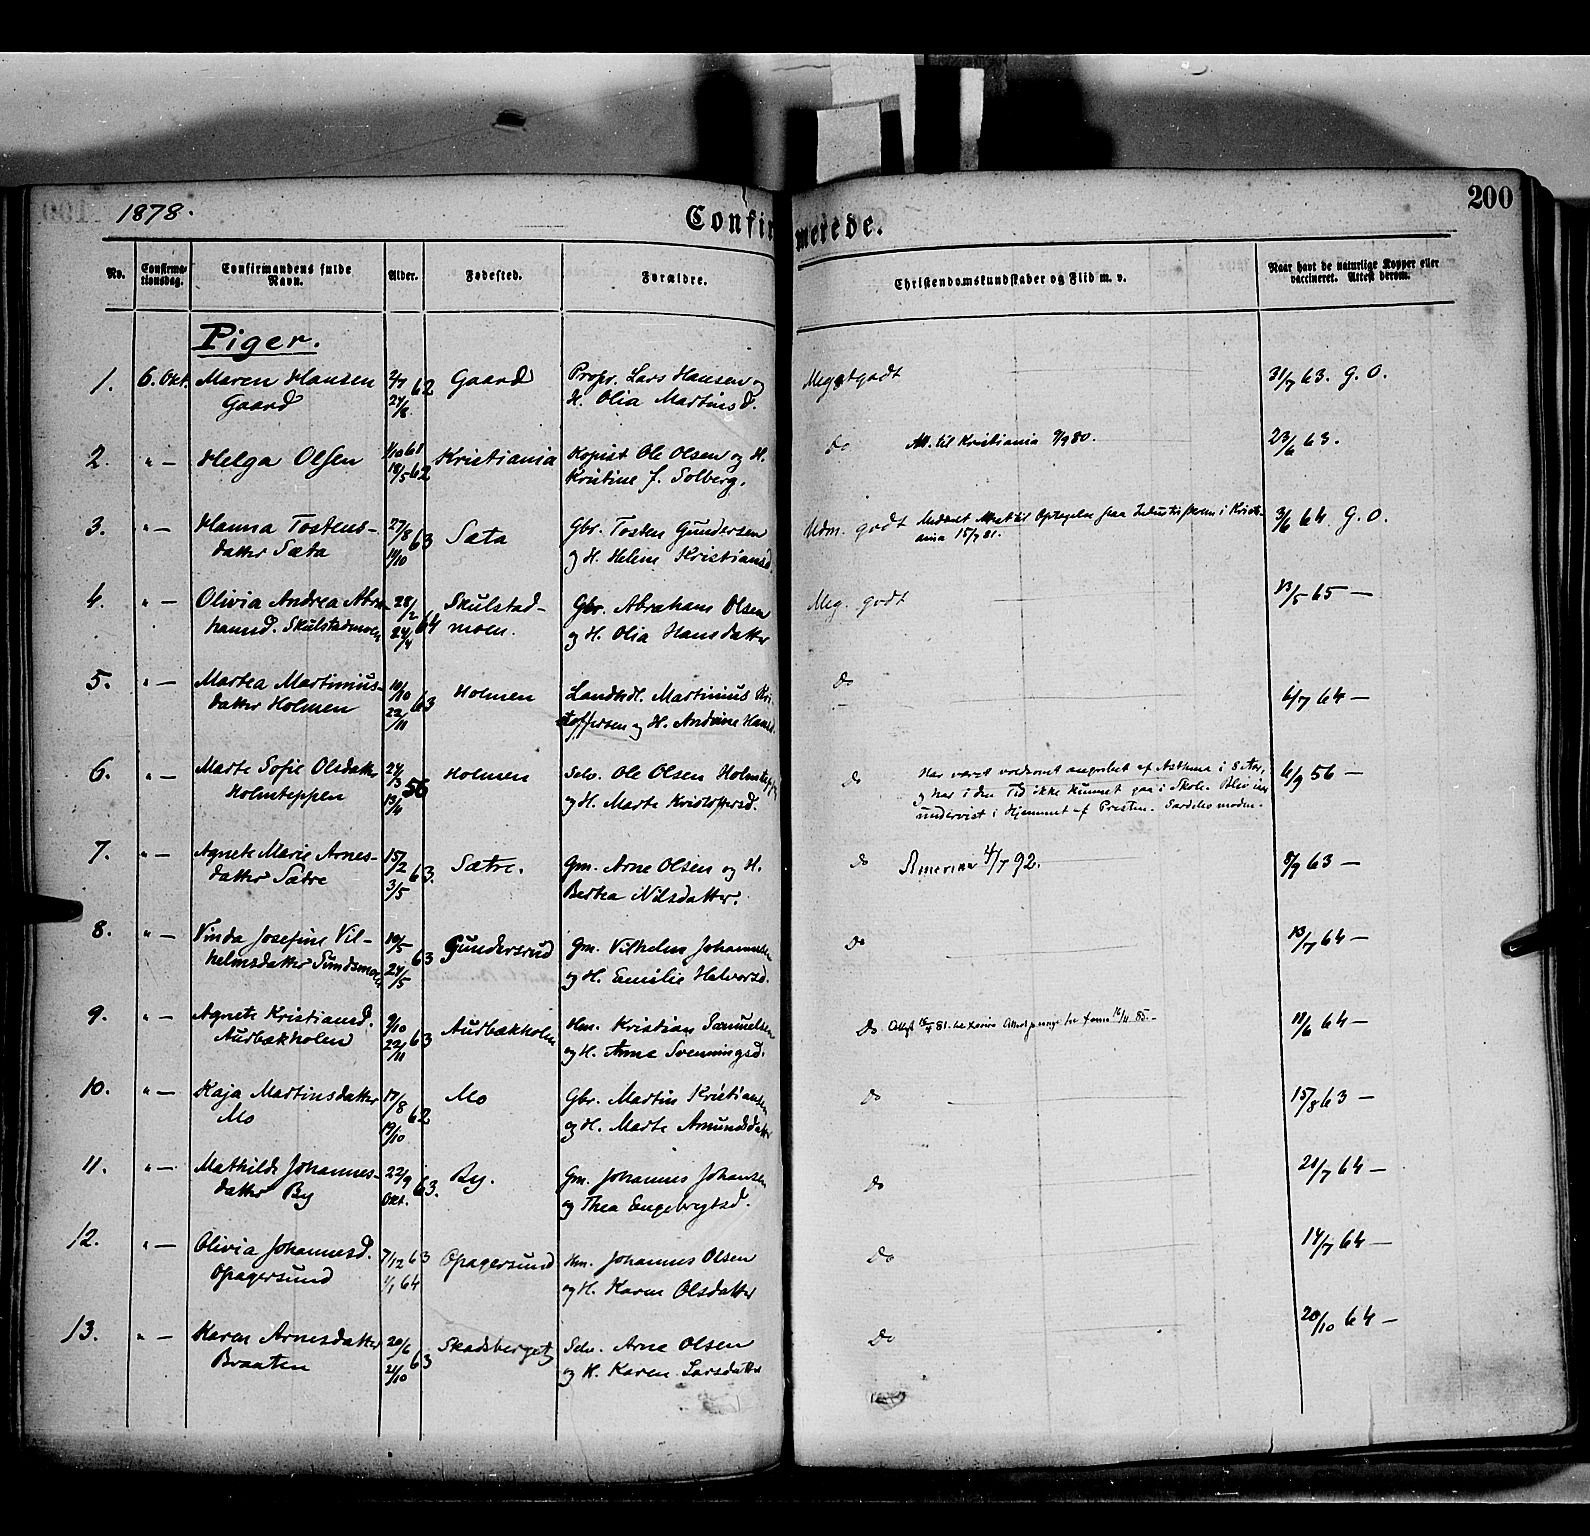 1878.
Confirmerede.
200
No.
Confirma-
tionsdag.
Confirmandens fulde
Navn.
Alder.
Fødested.
Forældre.
Christendomskundskaber og Flid m. v.
Naar havt de naturlige Kopper eller
vaccineret. Attest derom.
Piger.
1. 6. Okt. Maren Hansen 2/7 62 Gaard Propr. Lars Hansen og Meget godt 31/7 63. g. O.
Gaard 24/8 H. Olia Martinsd.
2. " — Helga Olsen 1/10 61 Kristiania Kopist Ole Olsen og H. do Att. til Kristiania 9/9 80. 23/6 63.
18/5 62 Kristine f. Solberg.
3. " — Hanna Tostens- 27/8 63 Sæta Gbr. Tosten Gundersen Udm. godt Meddelt Attest til Optagelse paa Industriskolen i Kristi- 3/6 64 g. O.
datter Sæta 14/10 og H. Helene Kristiansd. ania 15/7 81.
4. " — Olivia Andrea Abra- 28/2 64 Skulstad- Gbr. Abraham Olsen Meg. godt 13/5 65 —
hamsd. Skulstadmoen 24/4 moen. og H. Olia Hansdatter
5. " — Martea Martinius- 10/10 63 Holmen Landhdl. Martinius Kri- do 6/7 64 —
datter Holmen 22/11 stoffersen og H. Andrine Hansd.
6. " — Marte Sofie Olsdatter 24/3 56 Holmen Selv. Ole Olsen Holmteppen do Har været voldsomt angrebet af Asthma i 8 Aar, 6/9 56 —
Holmteppen 13/4 og H. Marte Kristoffersd. og har i den Tid ikke kunnet gaa i Skole. Blev
undervist i Hjemmet af Presten. Særdeles moden.
7. " — Agnete Marie Arnes- 15/2 63. Sætre. Gm. Arne Olsen og H. do Amerika 4/7 92. 8/9 63 —
datter Sætre 3/5 Bertea Nilsdatter.
8. " — Vinda Josefine Vil- 10/5 63 Gundersrud Gm. Vilhelm Johannesen do 10/7 64 —
helmsdatter Sundsmoen 24/5 og H. Emilie Halvorsd.
9. " — Agnete Kristiansd. 9/10 63 Audbækholen Hm. Kristian Samuelsen do 11/6 64 —
Audbækholen 22/11 og H. Anne Svenningsd.
10. " — Kaja Martinsdatter 17/8 62 Mo Gbr. Martin Kristiansen do 15/8 63 —
Mo 19/10 og H. Marte Amundsdatter
11. " — Mathilde Johannes- 22/9 63. By. Gm. Johannes Johansen do 21/7 64 —
datter By Okt. og Thea Engebregtsd.
12. " — Olivia Johannesd. 7/12 63 Opagersund Hm. Johannes Olsen do 14/7 64 —
Opagersund 1/1 64 og H. Karen Olsdatter
13. " — Karen Arnesdatter 20/6 63 Skadsberget Selv. Arne Olsen do 20/10 64 —
Braaten 21/10 og H. Karen Larsdatter